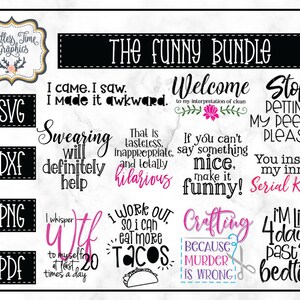 Time
Graphics
THE FUNNY BUNDLE
SVG
DXF
PNG
PDF
I came. I saw.
I made it awkward.
Welcome
to my interpretation of clean
Stop
PETTIN
MY PEE
PLEAS
Swearing
will
definitely
help
That is
tasteless,
inappropriate,
and totally
hilarious
If you can't
say something
nice,
make it
funny!
You ins
my inn
Serial K
I whisper
WTF
to myself
at least 20
times a day
I WORK OUT
SO I CAN
EAT MORE
TACOS
Crafting
BECAUSE
MURDER
IS WRONG
I'M LI
4 day
past
bedti